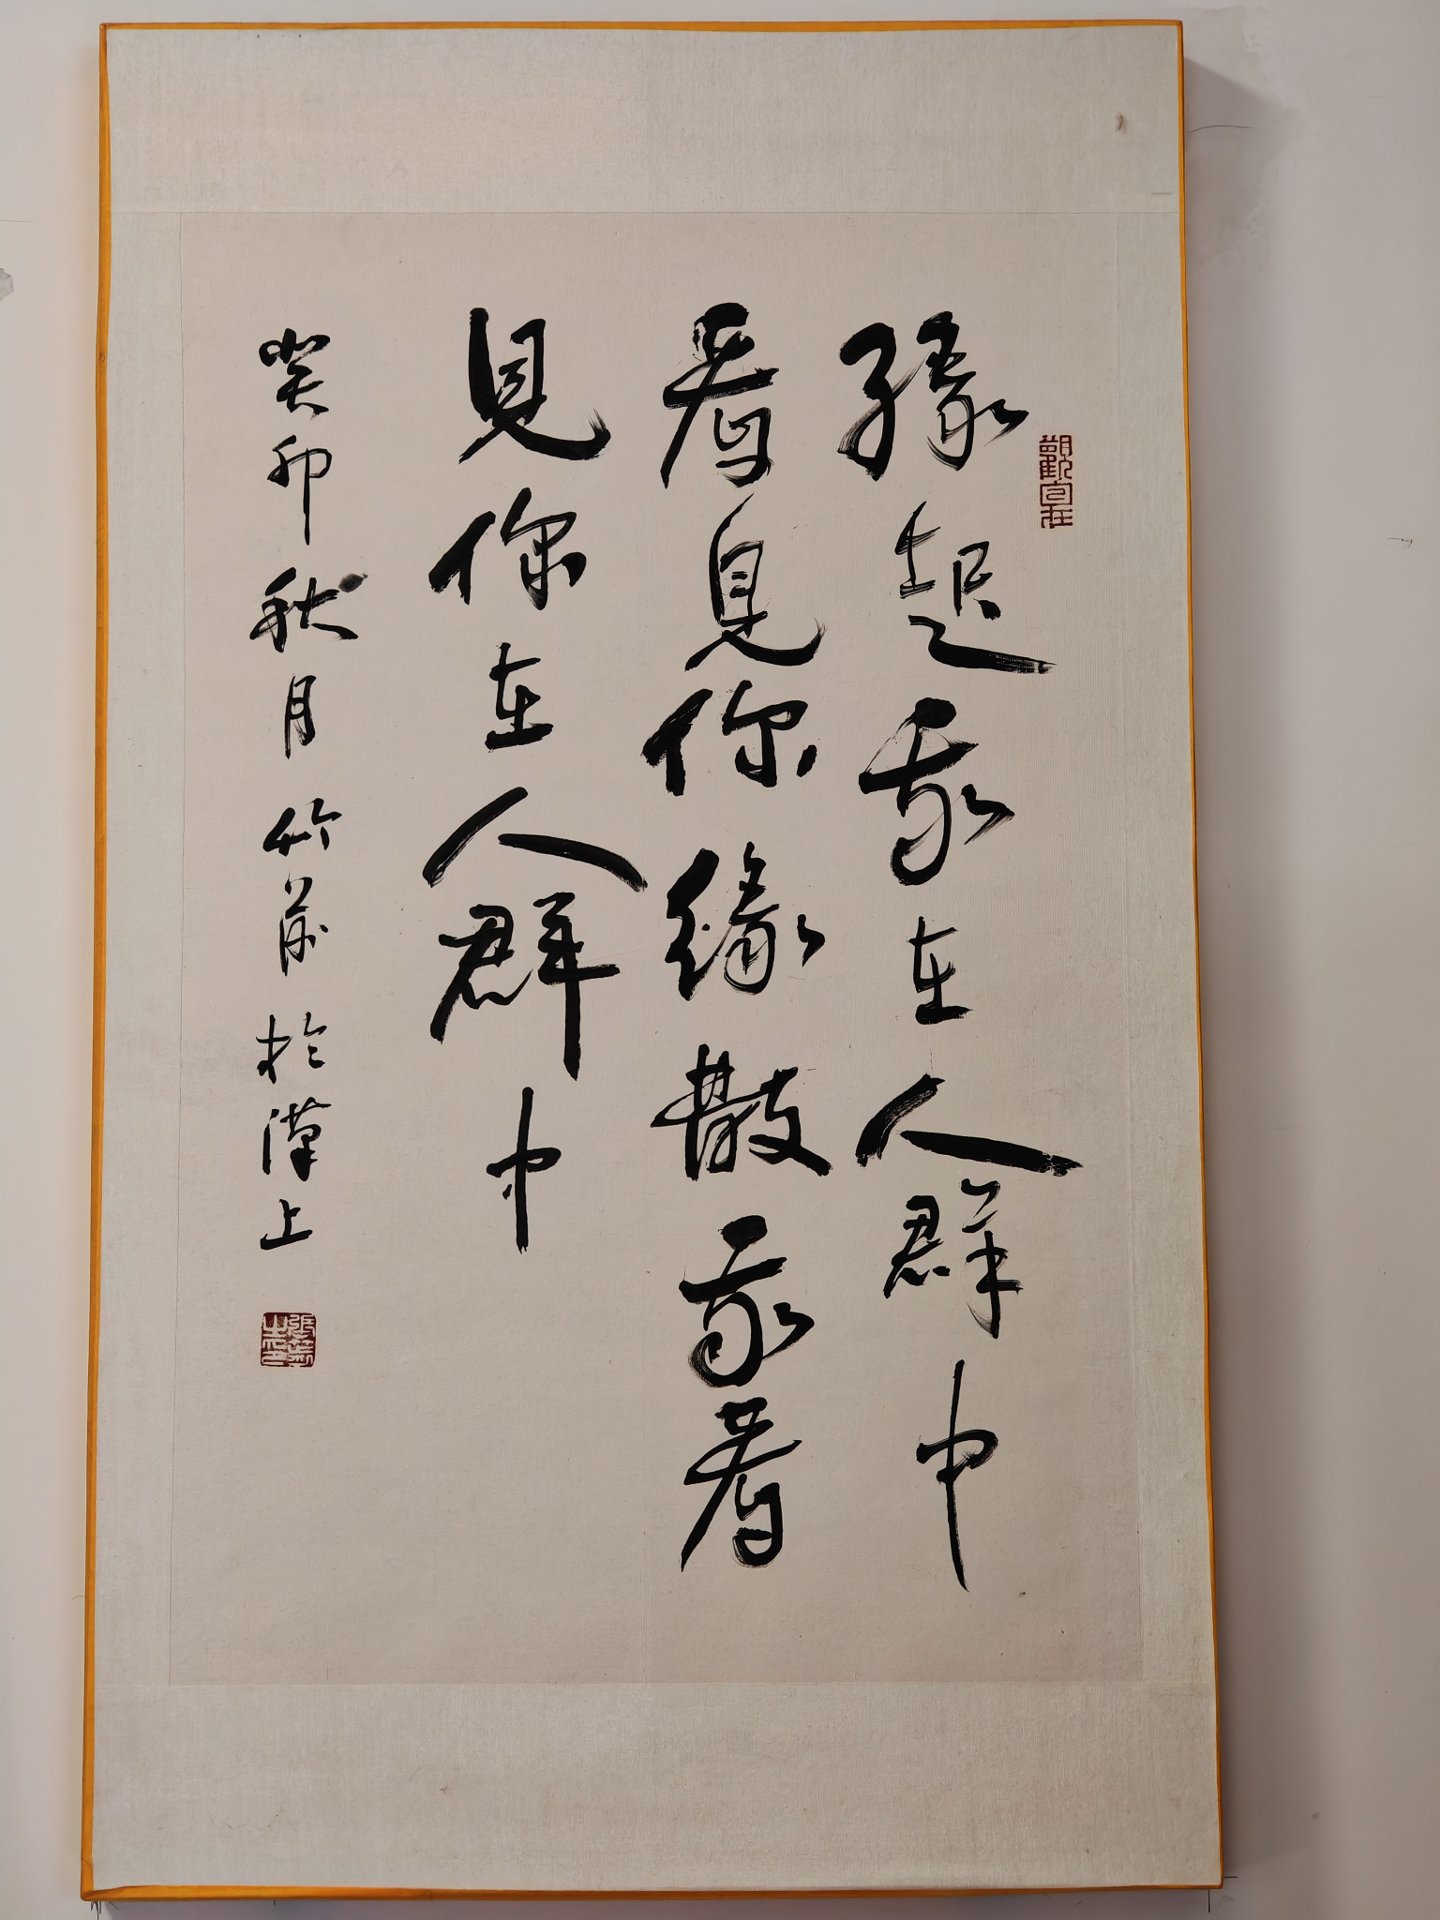 緣起我在人群中
看見你緣散我看
見你在人群中
癸卯秋月竹前於漢上
觀自在